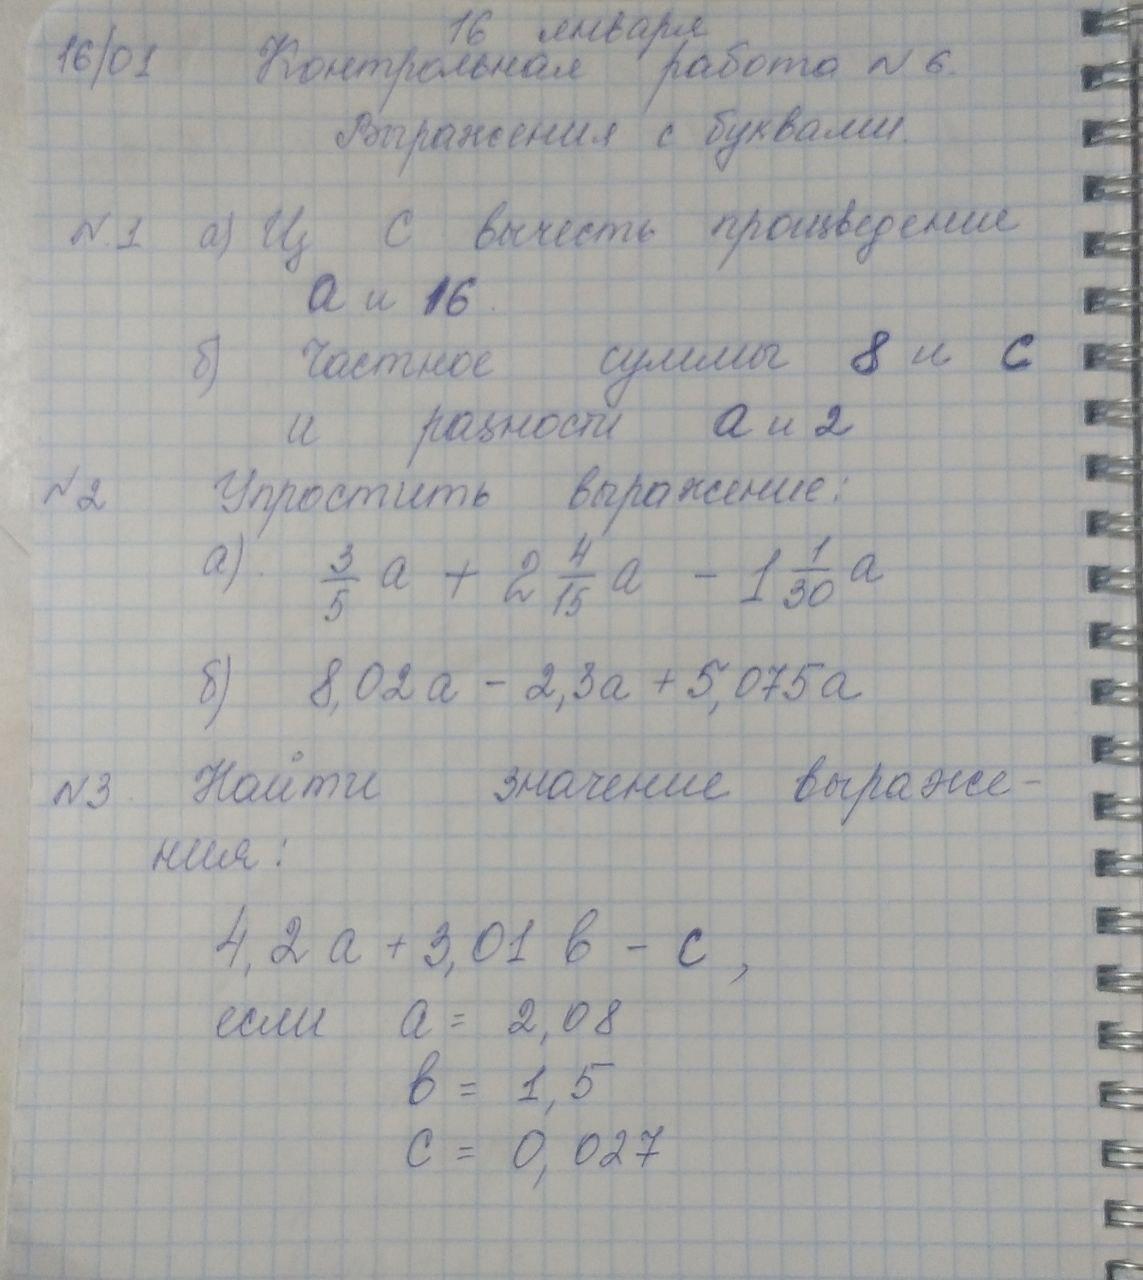 16 января
16/01 Контрольная работа №6.
Выражения с буквами.
№1 а) Из С вычесть произведение
а и 16.
б) Частное суммы 8 и С
и разности а и 2
№2 Упростить выражение:
а) 3/5 а + 2 4/15 а - 1 1/30 а
б) 8,02а - 2,3а + 5,075а
№3. Найти значение выраже-
ния:
4,2а + 3,01 в - с,
если а = 2,08
в = 1,5
с = 0,027